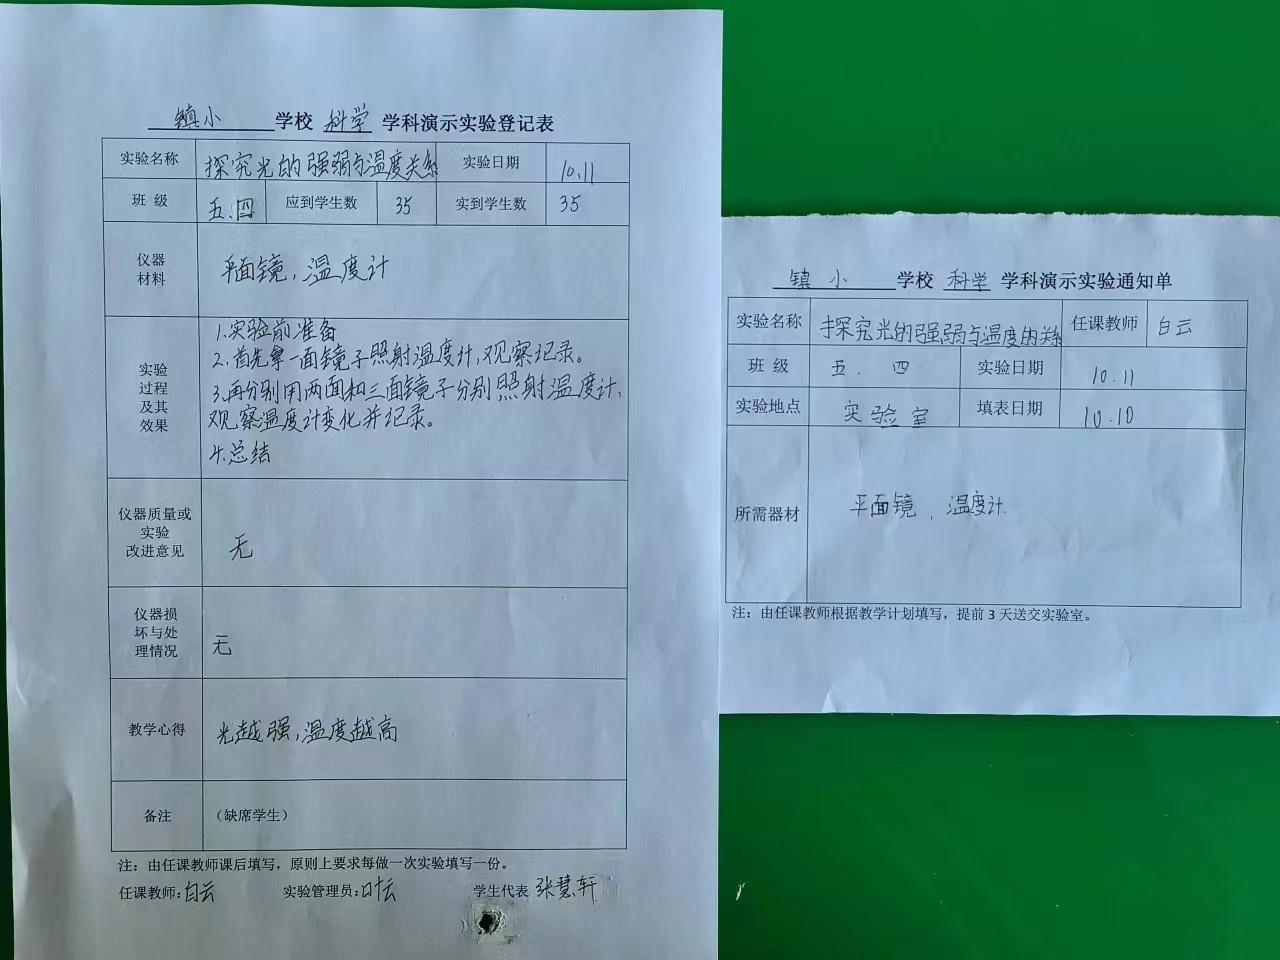 镇小 学校 科学 学科演示实验登记表
实验名称 探究光的强弱与温度关系 实验日期 10.11
班 级 五.四 应到学生数 35 实到学生数 35
仪器
材料
平面镜、温度计
实验
过程
及其
效果
1.实验前准备
2.首先拿一面镜子照射温度计,观察纪录。
3.再分别用两面和三面镜子分别照射温度计、
观察温度计变化并纪录。
4.总结
仪器质量或
实验
改进意见
无
仪器损
坏与处
理情况
无
教学心得 光越强,温度越高
备注 （缺席学生）
注：由任课教师课后填写，原则上要求每做一次实验填写一份。
任课教师:白云 实验管理员:叶云 学生代表 张慧轩
镇 小 学校 科学 学科演示实验通知单
实验名称 探究光的强弱与温度的关系 任课教师 白云
班 级 五. 四 实验日期 10.11
实验地点 实验室 填表日期 10.10
所需器材 平面镜、温度计.
注：由任课教师根据教学计划填写，提前 3 天送交实验室。